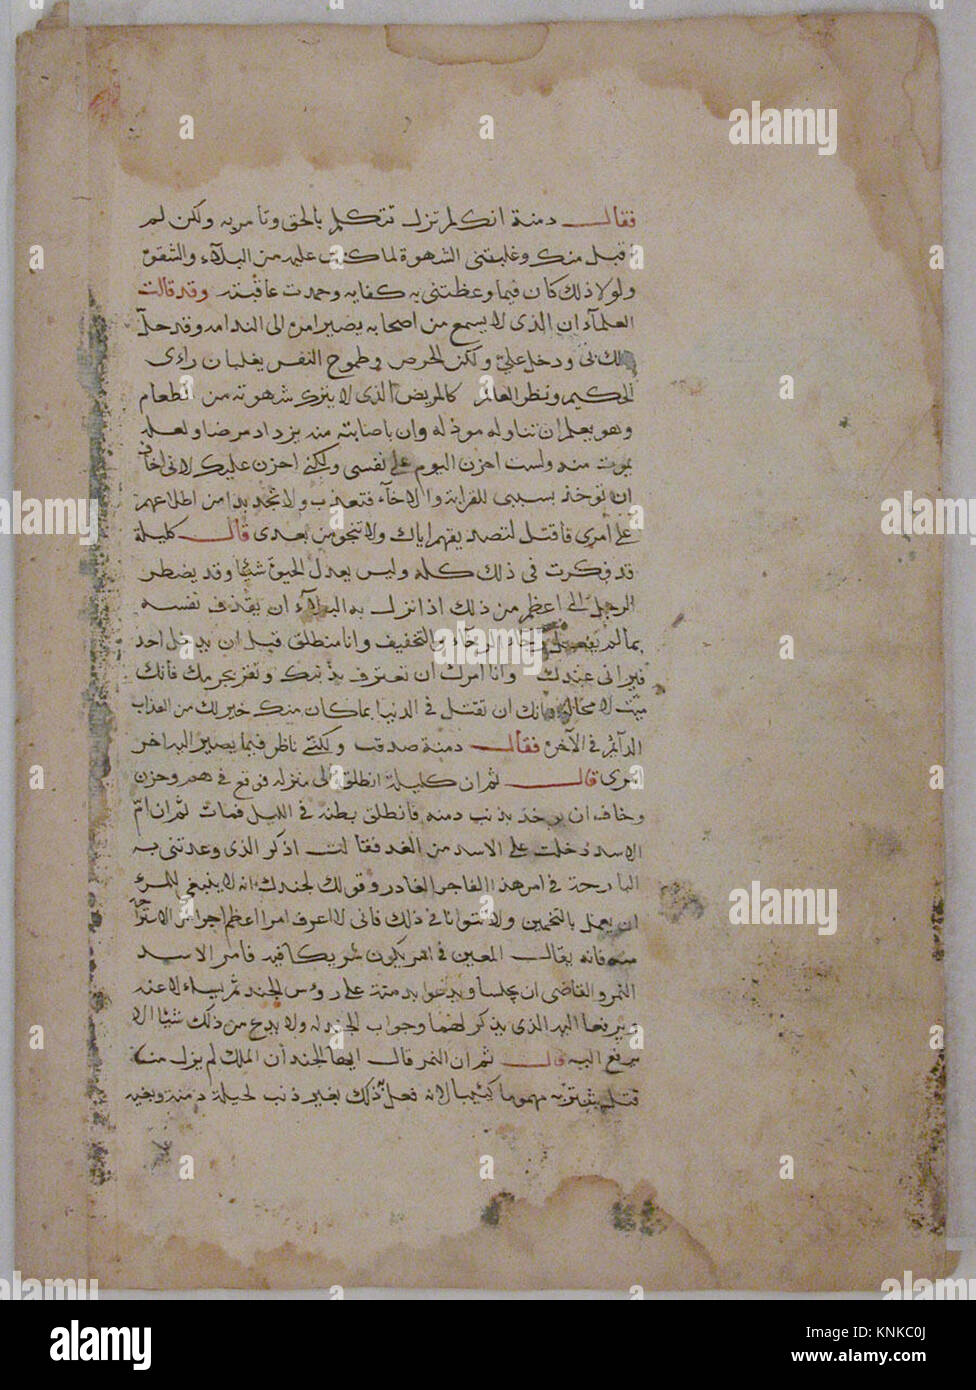 فقالـ دمنة انك لم تزل تتكلم بالحق وتامر به ولكن لم
اقبل منك وغلبتني الشهوة لما كتب علي من البلاء والشقو
ولولا ذلك كان فيما وعظتني به كفايه وحمدت عاقبته وقد قالت
العلماء ان الذى لا يسمع من اصحابه يصير امره الى الندامه وقد حل
ذلك بى ودخل علي ولكن الحرص وطموح النفس يغلبان راى
الحكيم ونظر العالم كالمريض الذى لا يترك شهوته من الطعام
وهو يعلم ان تناوله موذ له وان باصابته منه يزداد مرضا ولعله
يموت منه ولست احزن اليوم على نفسى ولكنى احزن عليك لانى اخاف
ان توخذ بسببى للقرابة والاخاء فتعذب ولا تجد بدا من اطلاعهم
على امرى فاقتل لتصديقهم اياك ولا تنجو من بعدى قالـ كليلة
قد فكرت فى ذلك كله وليس يعدل الحيوة شيئا وقد يضطر
الرجل الى اعظم من ذلك اذا نزل به البلاء ان يقذف نفسه
بما لم يفعل رجاء الرخاء والتخفيف وانا منطلق قبل ان يدخل احد
فيرانى عندك وانا امرك ان تعترف بذنبك وتقر بجرمك فانك
ميت لا محالة فانك ان تقتل فى الدنيا بما كان منك خير لك من العذاب
الدائم فى الآخرة فقالـ دمنة صدقت ولكنى ناظر فيما يصير اليه اخر
امرى قالـ ثم ان كليلة انطلق الى منزله فوقع فى هم وحزن
وخاف ان يوخذ بذنب دمنه فانطلق بطنه فى الليل فمات ثم ان ام
الاسد دخلت على الاسد من الغد فقالت اذكر الذى وعدتنى به
البارحة فى امر هذا الفاجر الغادر وقولك لجندك انه لا ينبغى للمرء
ان يعمل بالتخمين ولا تتوانا فى ذلك فانى لا اعرف امرا اعظم اجرا من الاستراحة
منه فانه يقال المعين فى يكون شريكا فيه فامر الاسد
النمر والقاضى ان يجلسا ويدعوا بدمنة على روس الجند ثم يسالا عنه
ويرفعا اليه الذى يذكر لهما وجواب الجند له ولا يدع من ذلك شيئا الا
يرفع اليه قالـ ثم ان النمر قال ايها الجند ان الملك لم يزل منذ
قتل شتربه مهموما كئيبا لانه فعل ذلك بغير ذنب لحيلة دمنة وبغيه
alamy
KNKC0J
www.alamy.com